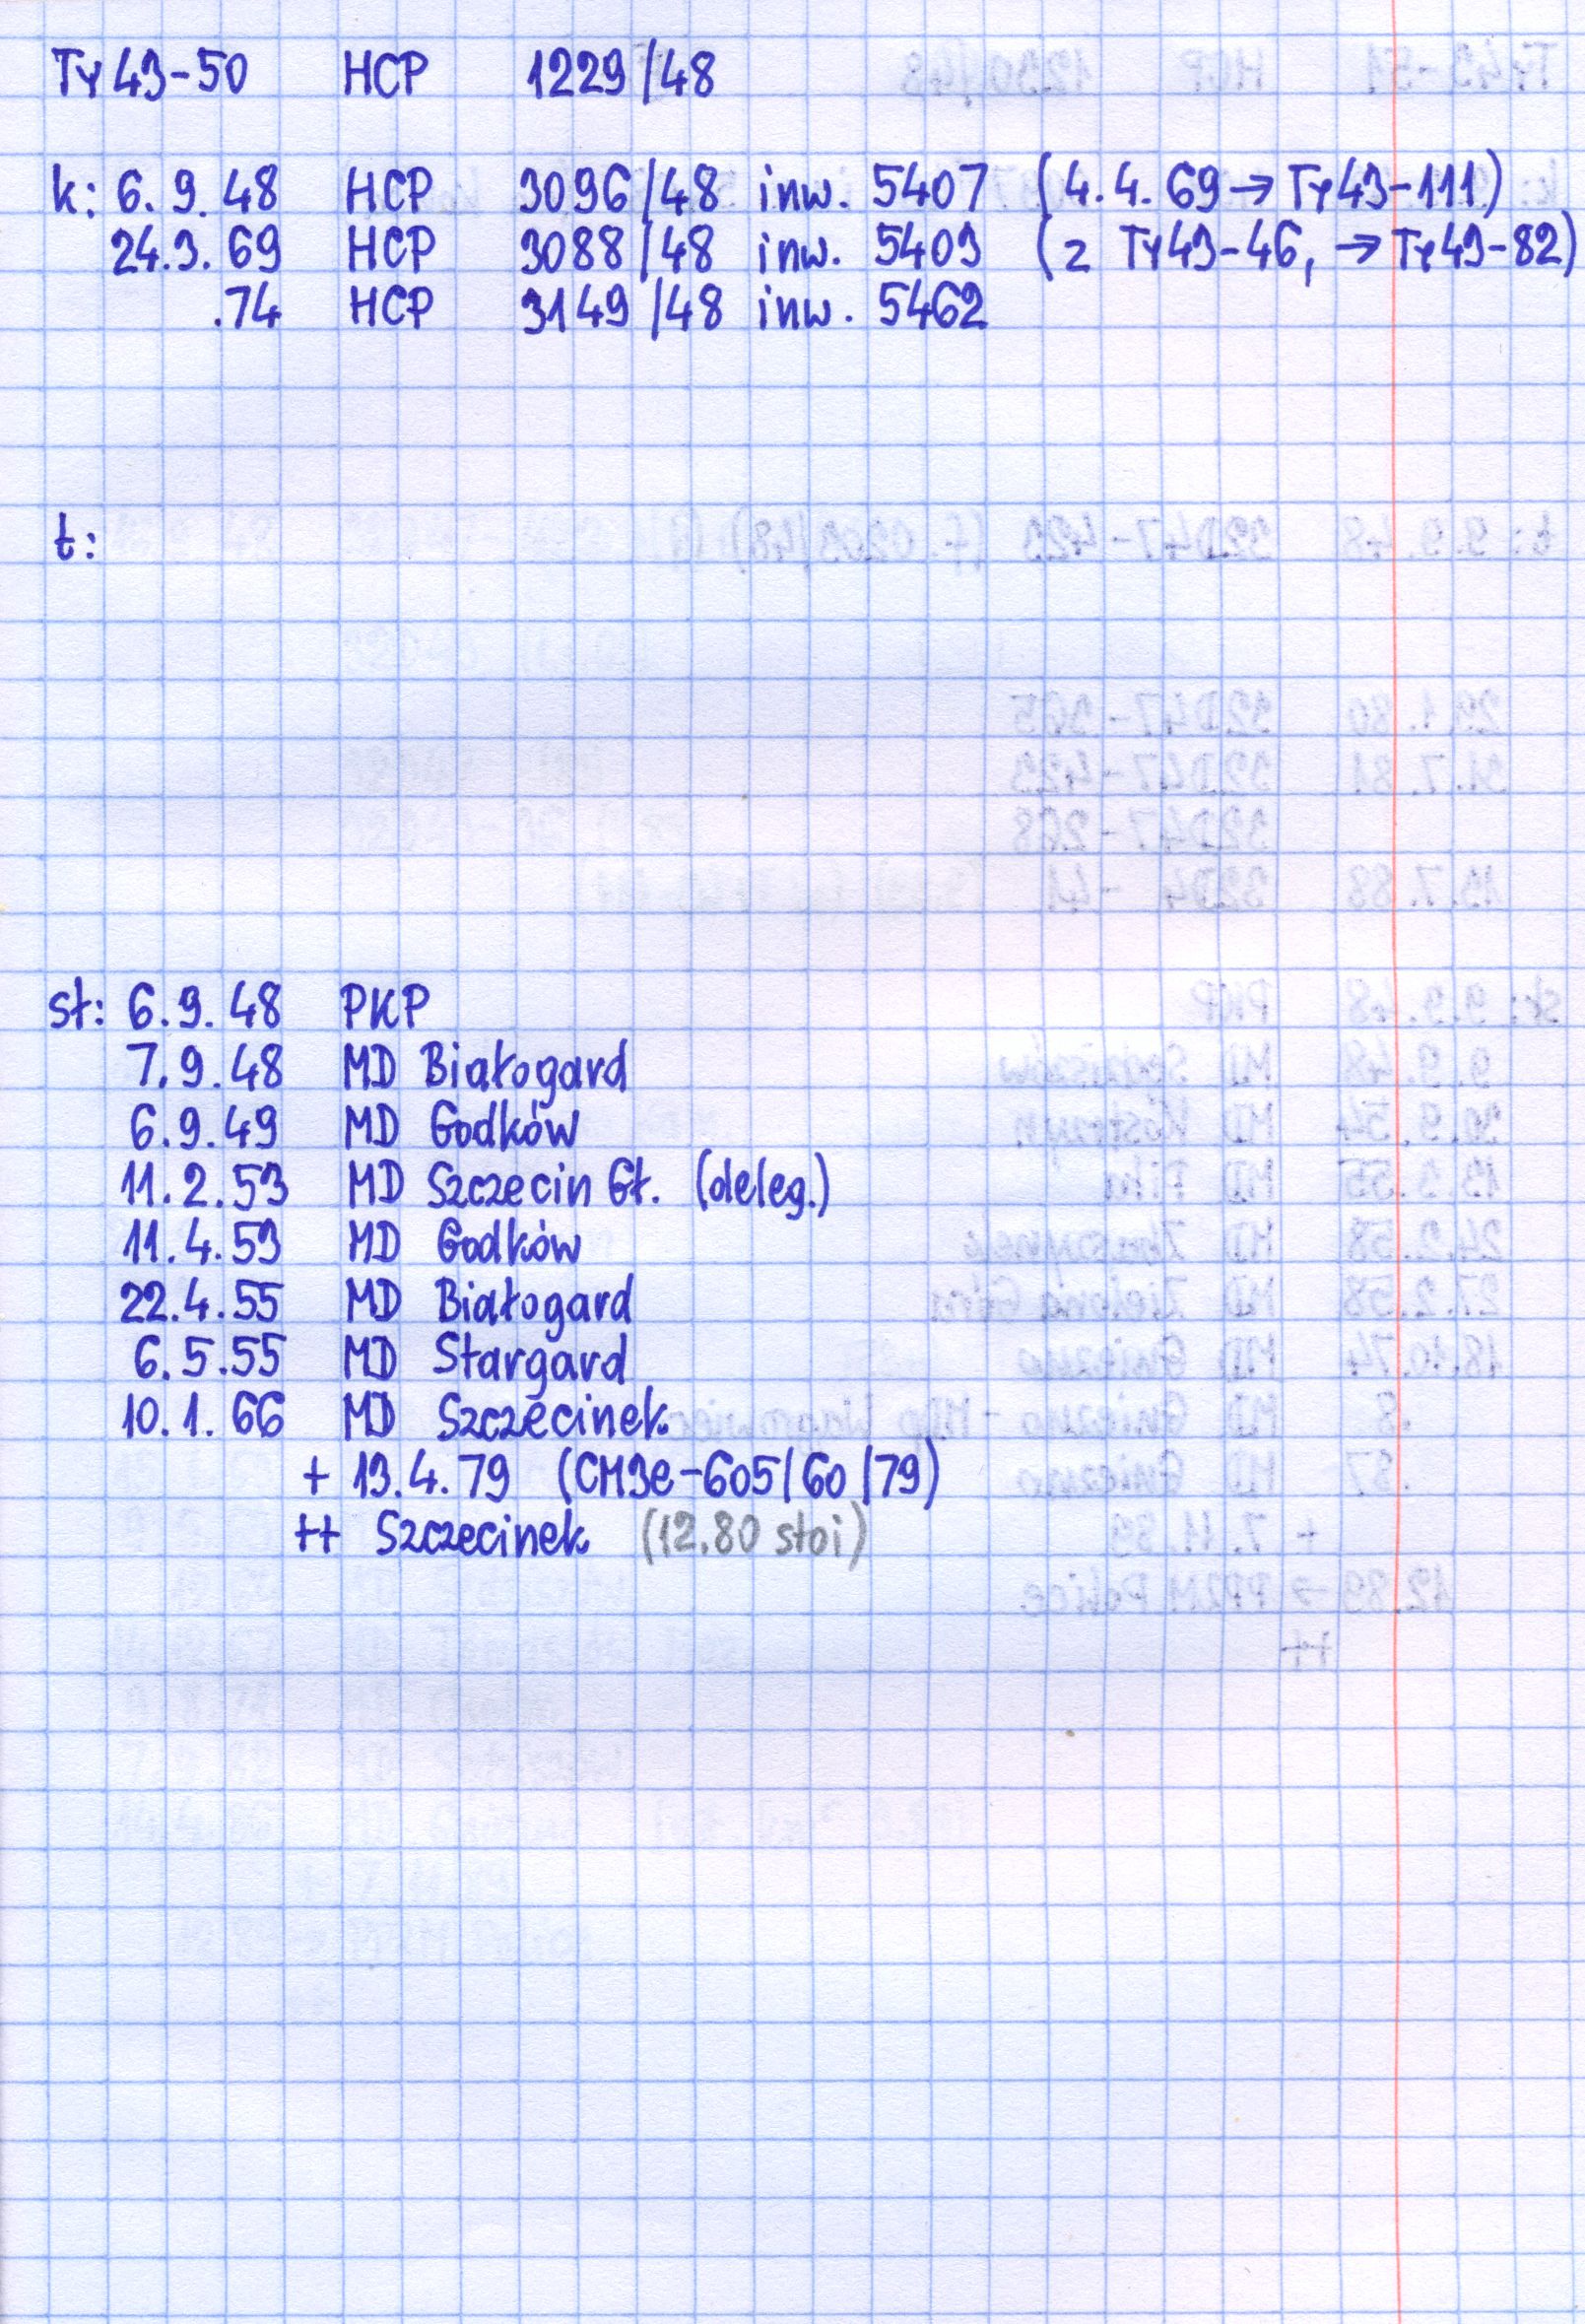 Ty43-50 HCP 1229/48
k: 6.9.48 HCP 3096/48 inw. 5407 (4.4.69→Ty43-111)
24.3.69 HCP 3088/48 inw. 5403 (z Ty43-46, →Ty43-82)
.74 HCP 3149/48 inw. 5462
t:
st: 6.9.48 PKP
7.9.48 MD Białogard
6.9.49 MD Godków
11.2.53 MD Szczecin Gł. (deleg.)
11.4.53 MD Godków
22.4.55 MD Białogard
6.5.55 MD Stargard
10.1.66 MD Szczecinek
+ 13.4.79 (CM3e-605/60/79)
++ Szczecinek (12.80 stoi)